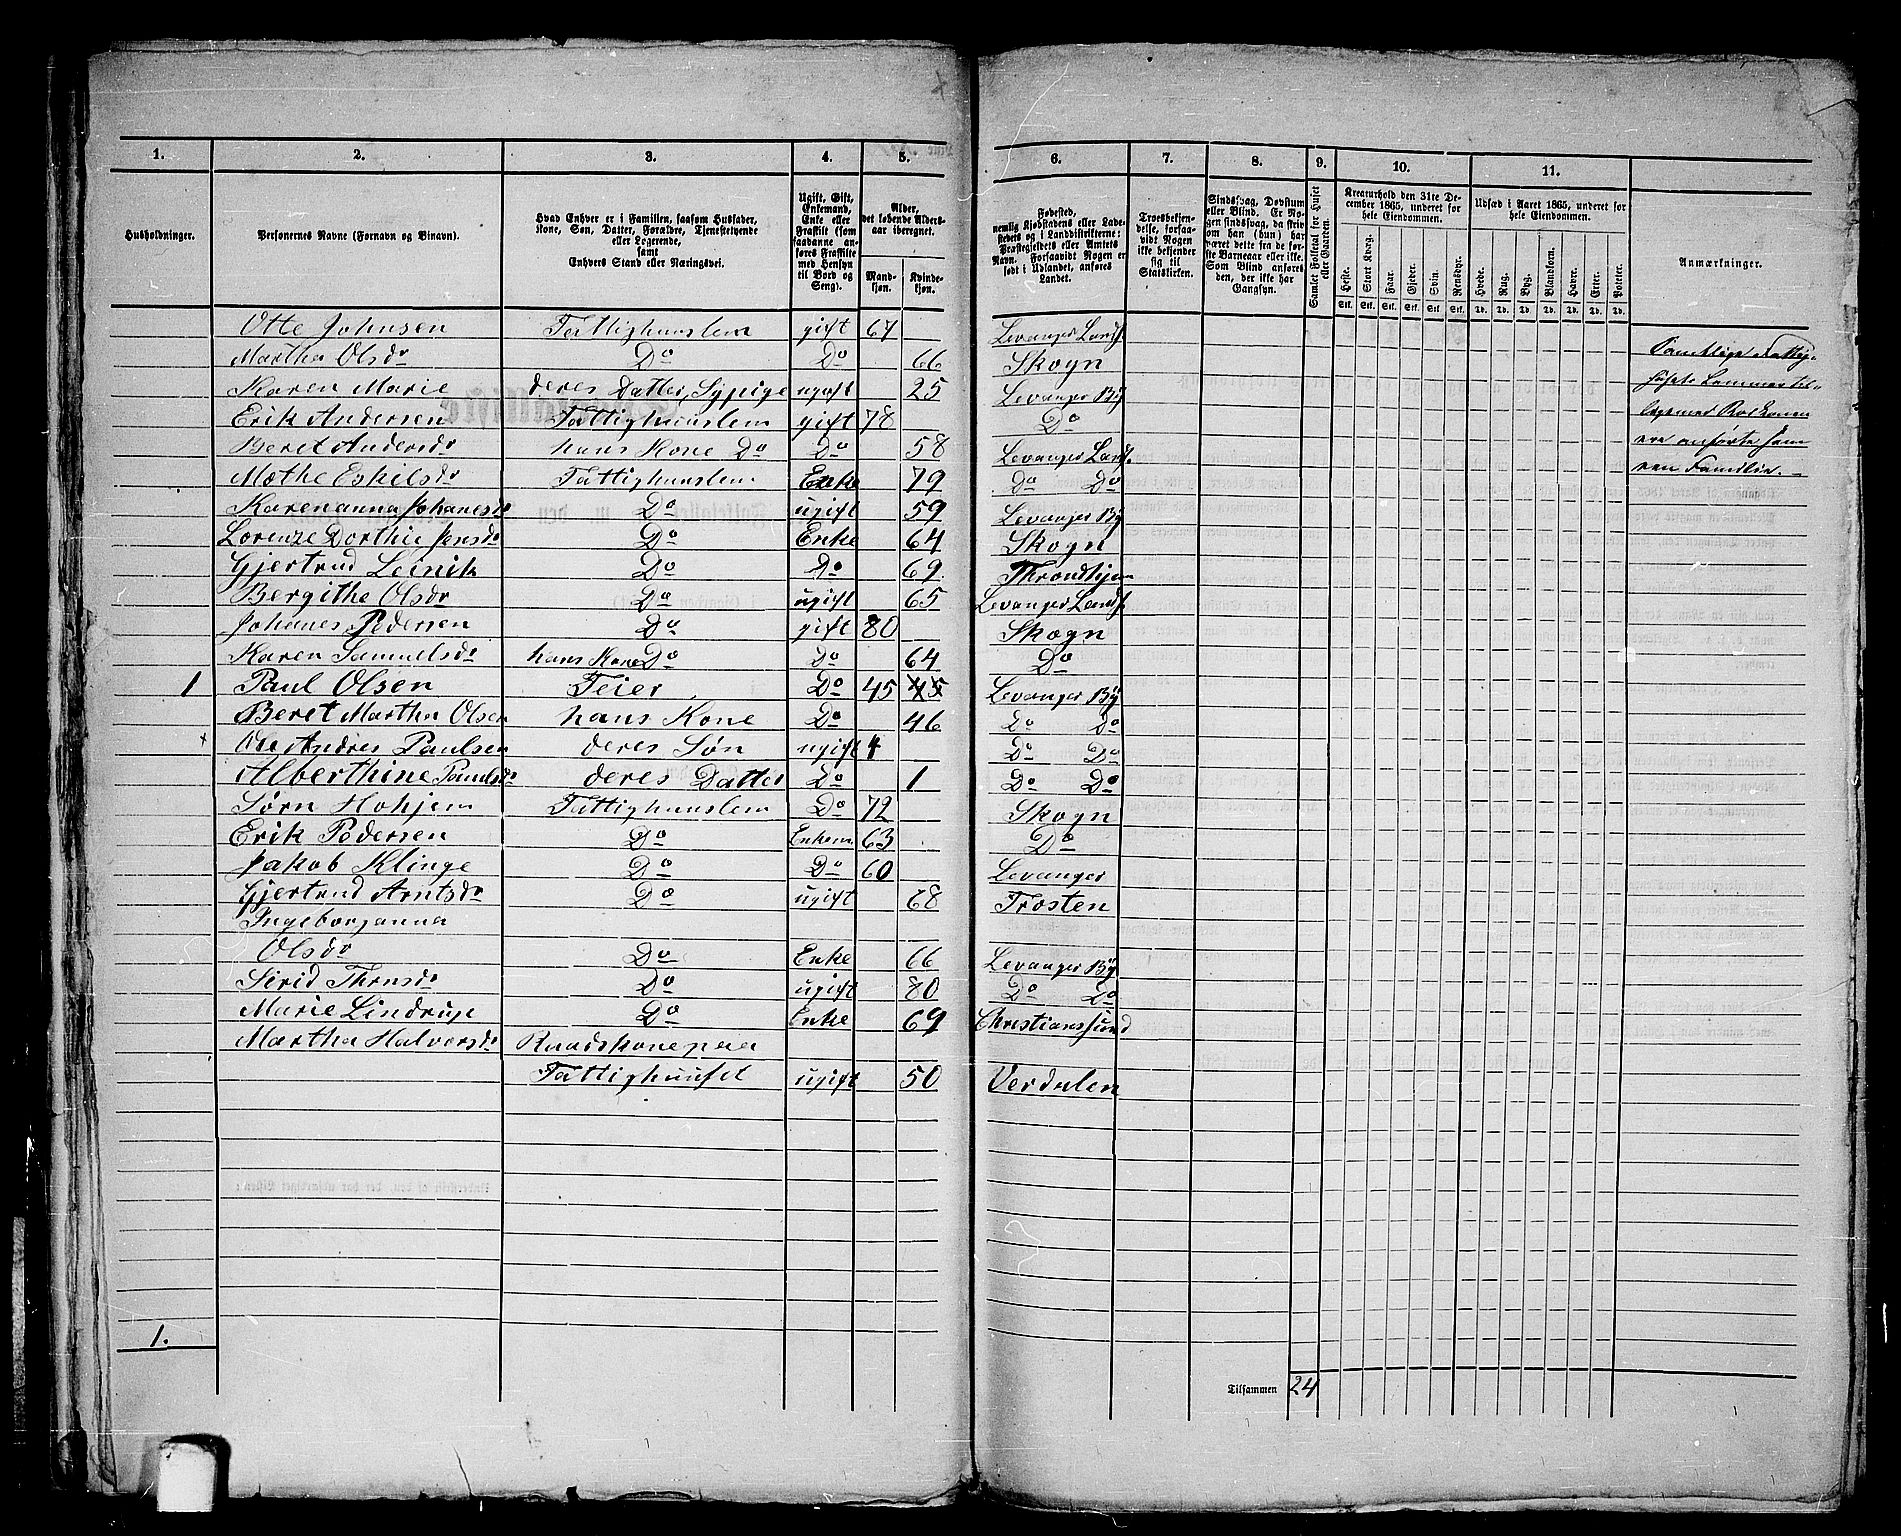 1. 2. 3. 4. 5. 6. 7. 8. 9. 10. 11.
Husholdninger.
Personernes Navne (Fornavn og Binavn).
Hvad Enhver er i Familien, saasom Husfader,
Kone, Søn, Datter, Forældre, Tjenestetyende
eller Logerende,
samt
Enhvers Stand eller Næringsvei.
Ugift, Gift,
Enkemand,
Enke eller
Fraskilt (som
saadanne an-
føres Fraskilte
med Hensyn
til Bord og
Seng).
Alder,
det løbende Alders-
aar iberegnet.
Mand-
kjøn.
Kvinde-
kjøn.
Fødested,
nemlig Kjøbstadens eller Lade-
stedets og i Landdistrikterne:
Præstegjeldets eller Amtets
Navn. Forsaavidt Nogen er
født i Udlandet, anføres
Landet.
Troesbekjen-
delse, forsaa-
vidt Nogen
ikke bekjender
sig til
Statskirken.
Sindssvag, Døvstum
eller Blind. Er No-
gen sindssvag, da skriv
om han (hun) har
været dette fra de før-
ste Barneaar eller ikke.
Som Blind anføres
den, der ikke har
Gangsyn.
Samlet Folketal for Huset
eller Gaarden.
Kreaturhold den 31te De-
cember 1865, underet for
hele Eiendommen.
Heste. Stort Kvæg. Faar. Gjeder. Svin. Rensdyr.
Stk. Stk. Stk. Stk. Stk. Stk.
Udsæd i Aaret 1865, underet for
hele Eiendommen.
Hvede. Rug. Byg. Blandkorn. Havre. Erter. Poteter.
Td. Td. Td. Td. Td. Td. Td.
Anmærkninger.
Otte Johnsen Fattighuuslem gift 67 Levanger Lands.
Martha Olsdr Do Do 66 Skogn
Karen Marie deres Datter, Sypige ugift 25 Levanger By
Erik Andersen Fattighuuslem gift 78 Do
Beret Andersdr hans Kone Do Do 58 Levanger Lands.
Mæthe Eskilsdr Fattighuuslem Enke 79 Do Do
Karenanna Johanesdr Do ugift 59 Levanger By
Lorenze Dorthie Jensdr Do Enke 64 Skogn
Gjertrud Leinik Do Do 69 Throndhjem
Bergithe Olsdr Do ugift 65 Levanger Lands.
Johanes Pedersen Do gift 80 Skogn
Karen Samuelsdr hans Kone Do Do 64 Do
1 Paul Olsen Feier Do 45 45 Levanger By
Beret Martha Olsen hans Kone Do 46 Do Do
Ole Andres Paulsen deres Søn ugift 4 Do Do
Alberthine Paulsdr deres Datter Do 1 Do Do
Sørn Hohjem Fattighuuslem Do 72 Skogn
Erik Pedersen Do Enkem. 63 Do
Jakob Klinge Do Do 60 Levanger
Gjertrud Arntsdr Do ugift 68 Frosten
Ingeborganna
Olsdr Do Enke 66 Levanger By
Sirid Thmsdr Do ugift 80 Do Do
Marie Lindrup Do Enke 69 Christianssund
Martha Halversdr Raadskone paa
Fattighuuset ugift 50 Verdalen
Samtlige Fattig-
husets Lemmer til-
ligemed Raadkonen
ere anførte som
een Familie.
1.
Tilsammen 24